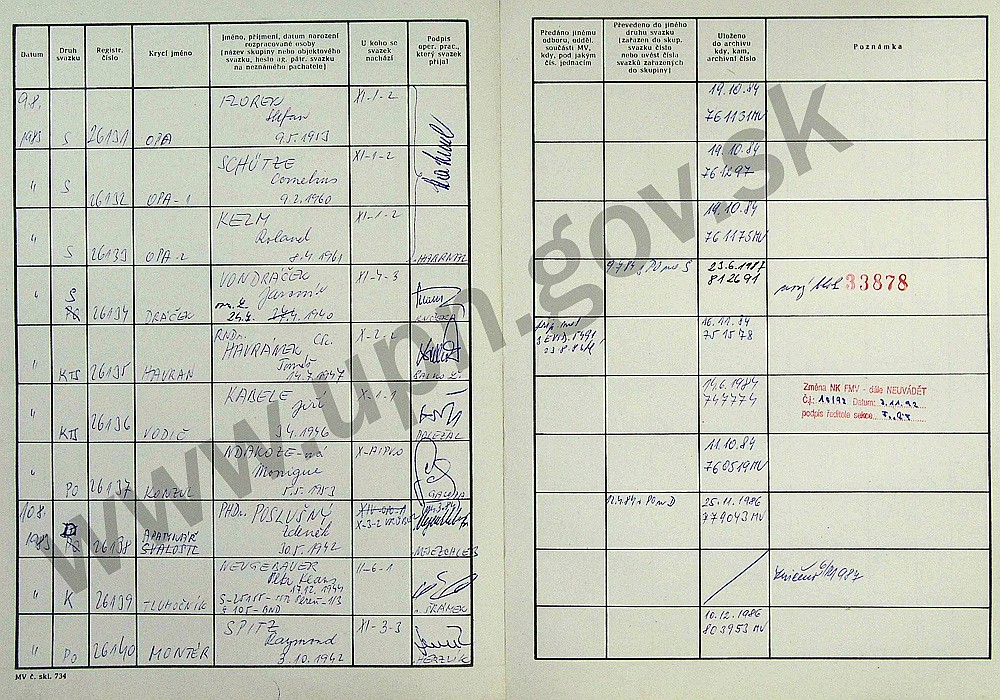 Datum
Druh
svazku
Registr.
číslo
Krycí jméno
Jméno, příjmení, datum narození
rozpracované osoby
(název skupiny nebo objektového
svazku, heslo ag. pátr. svazku
na neznámého pachatele)
U koho se
svazek
nachází
Podpis
oper. prac.,
který svazek
přijal
Předáno jinému
odboru, odděl.
součásti MV,
kdy, pod jakým
čís. jednacím
Převedeno do jiného
druhu svazku
(zařazen do skup.
svazku číslo
nebo uvést čísla
svazků zařazených
do skupiny)
Uloženo
do archivu
kdy, kam,
archivní číslo
Poznámka
9.8.
1983 S 26131 OPA
FLOREK
Stefan
9.5.1953
XI-1-2
19.10.84
761131MV
" S 26132 OPA-1
SCHÜTZE
Cornelius
9.2.1960
XI-1-2
19.10.84
761297
" S 26133 OPA-2
KELM
Roland
8.4.1961
XI-1-2
HAVRÁNEK
19.10.84
761175MV
" S
26134 DRÁČEK
VONDRÁČEK
Jaromír
1940
XI-4-3
KUČERA
9.4.84 z PO na S
23.6.1987
812691
nový blok 33878
" KTS 26135 HAVRAN
RNDr. CSc.
HAVRÁNEK
Tomáš
14.7.1947
X-2-2
16.11.84
751578
" KTS 26136 VODIČ
KABELE
Jiří
3.4.1946
X-1-1
DOLEŽAL
14.6.1984
747774
Změna NK FMV - dále NEUVÁDĚT
Č.j.: Datum: 3.11.92
podpis ředitele sekce
" PO 26137 KONZUL
NDAKOZE-ná
Monique
5.5.1953
11.10.84
760519MV
10.8.
1983 26138
PHDr. POSLUŠNÝ
Zdeněk
30.5.1942
NEJEZCHLEB
12.4.84 z PO na D
25.11.1986
779043MV
" K 26139 TLUMOČNÍK
NEUGEBAUER
Petr Klaus
17.12.1944
II-6-1
ŠRÁMEK
zničeno 1987
" PO 26140 MONTÉR
SPITZ
Raymond
3.10.1942
XI-3-3
10.12.1986
803953MV
MV č. skl. 734
www.upn.gov.sk